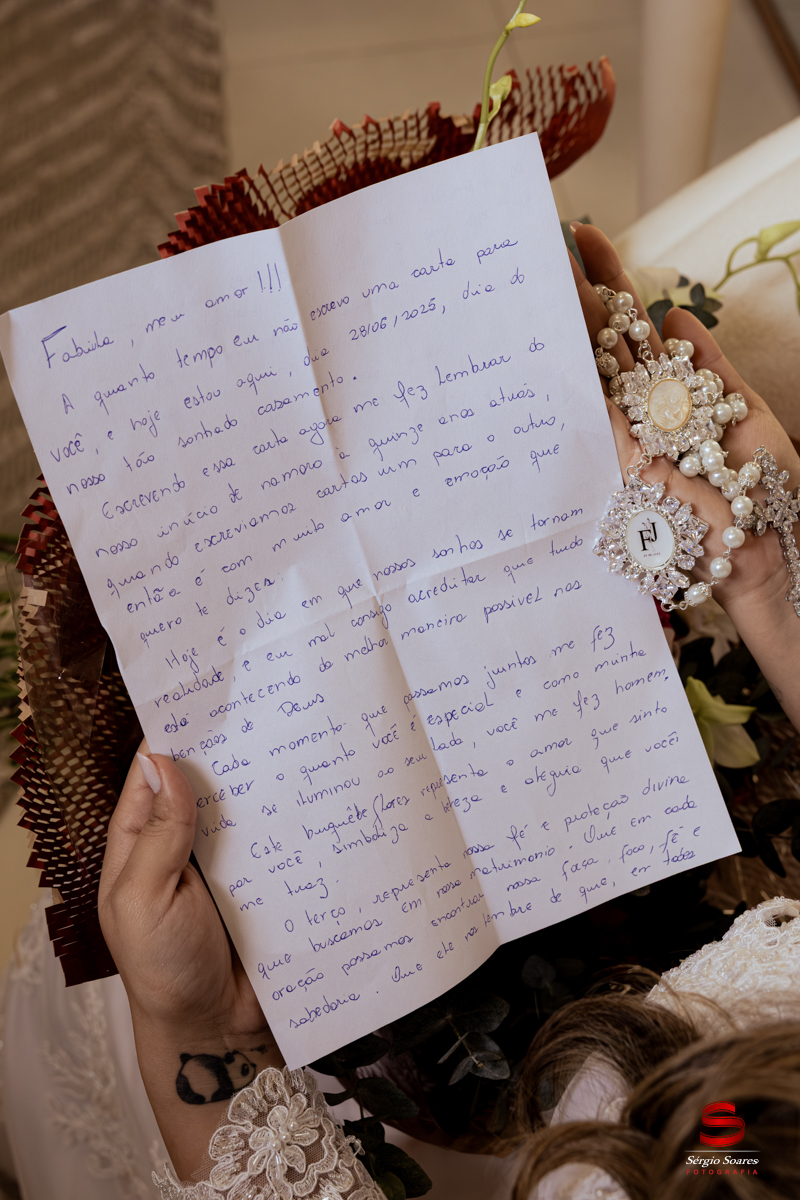 Fabiula, meu amor!!!
A quanto tempo eu não escrevo uma carta para
você, e hoje estou aqui, dia 28/06/2025, dia do
nosso tão sonhado casamento.
Escrevendo essa carta agora me fez lembrar do
nosso início de namoro à quinze anos atrás,
quando escrevíamos cartas um para o outro,
então é com muito amor e emoção que
quero te dizer:
Hoje é o dia em que nossos sonhos se tornam
realidade, e eu mal consigo acreditar que tudo
está acontecendo da melhor maneira possivel nas
bençãos de Deus
Cada momento que passamos juntos me fez
erceber o quanto você é especial e como minha
vida se iluminou ao seu lado, você me fez homem.
Este buguêbe flores representa o amor que sinto
por você, simboliza a beleza e alegria que você
me traz.
O terço, representa nossa fé e proteção divina
que buscamos em nosso matrimonio. Que em cada
oração possamos encontrar nossa força, foco, fé e
sabedoria. Que ele nos lembre de que, em todos
FJ
S
Sérgio Soares
FOTOGRAFIA